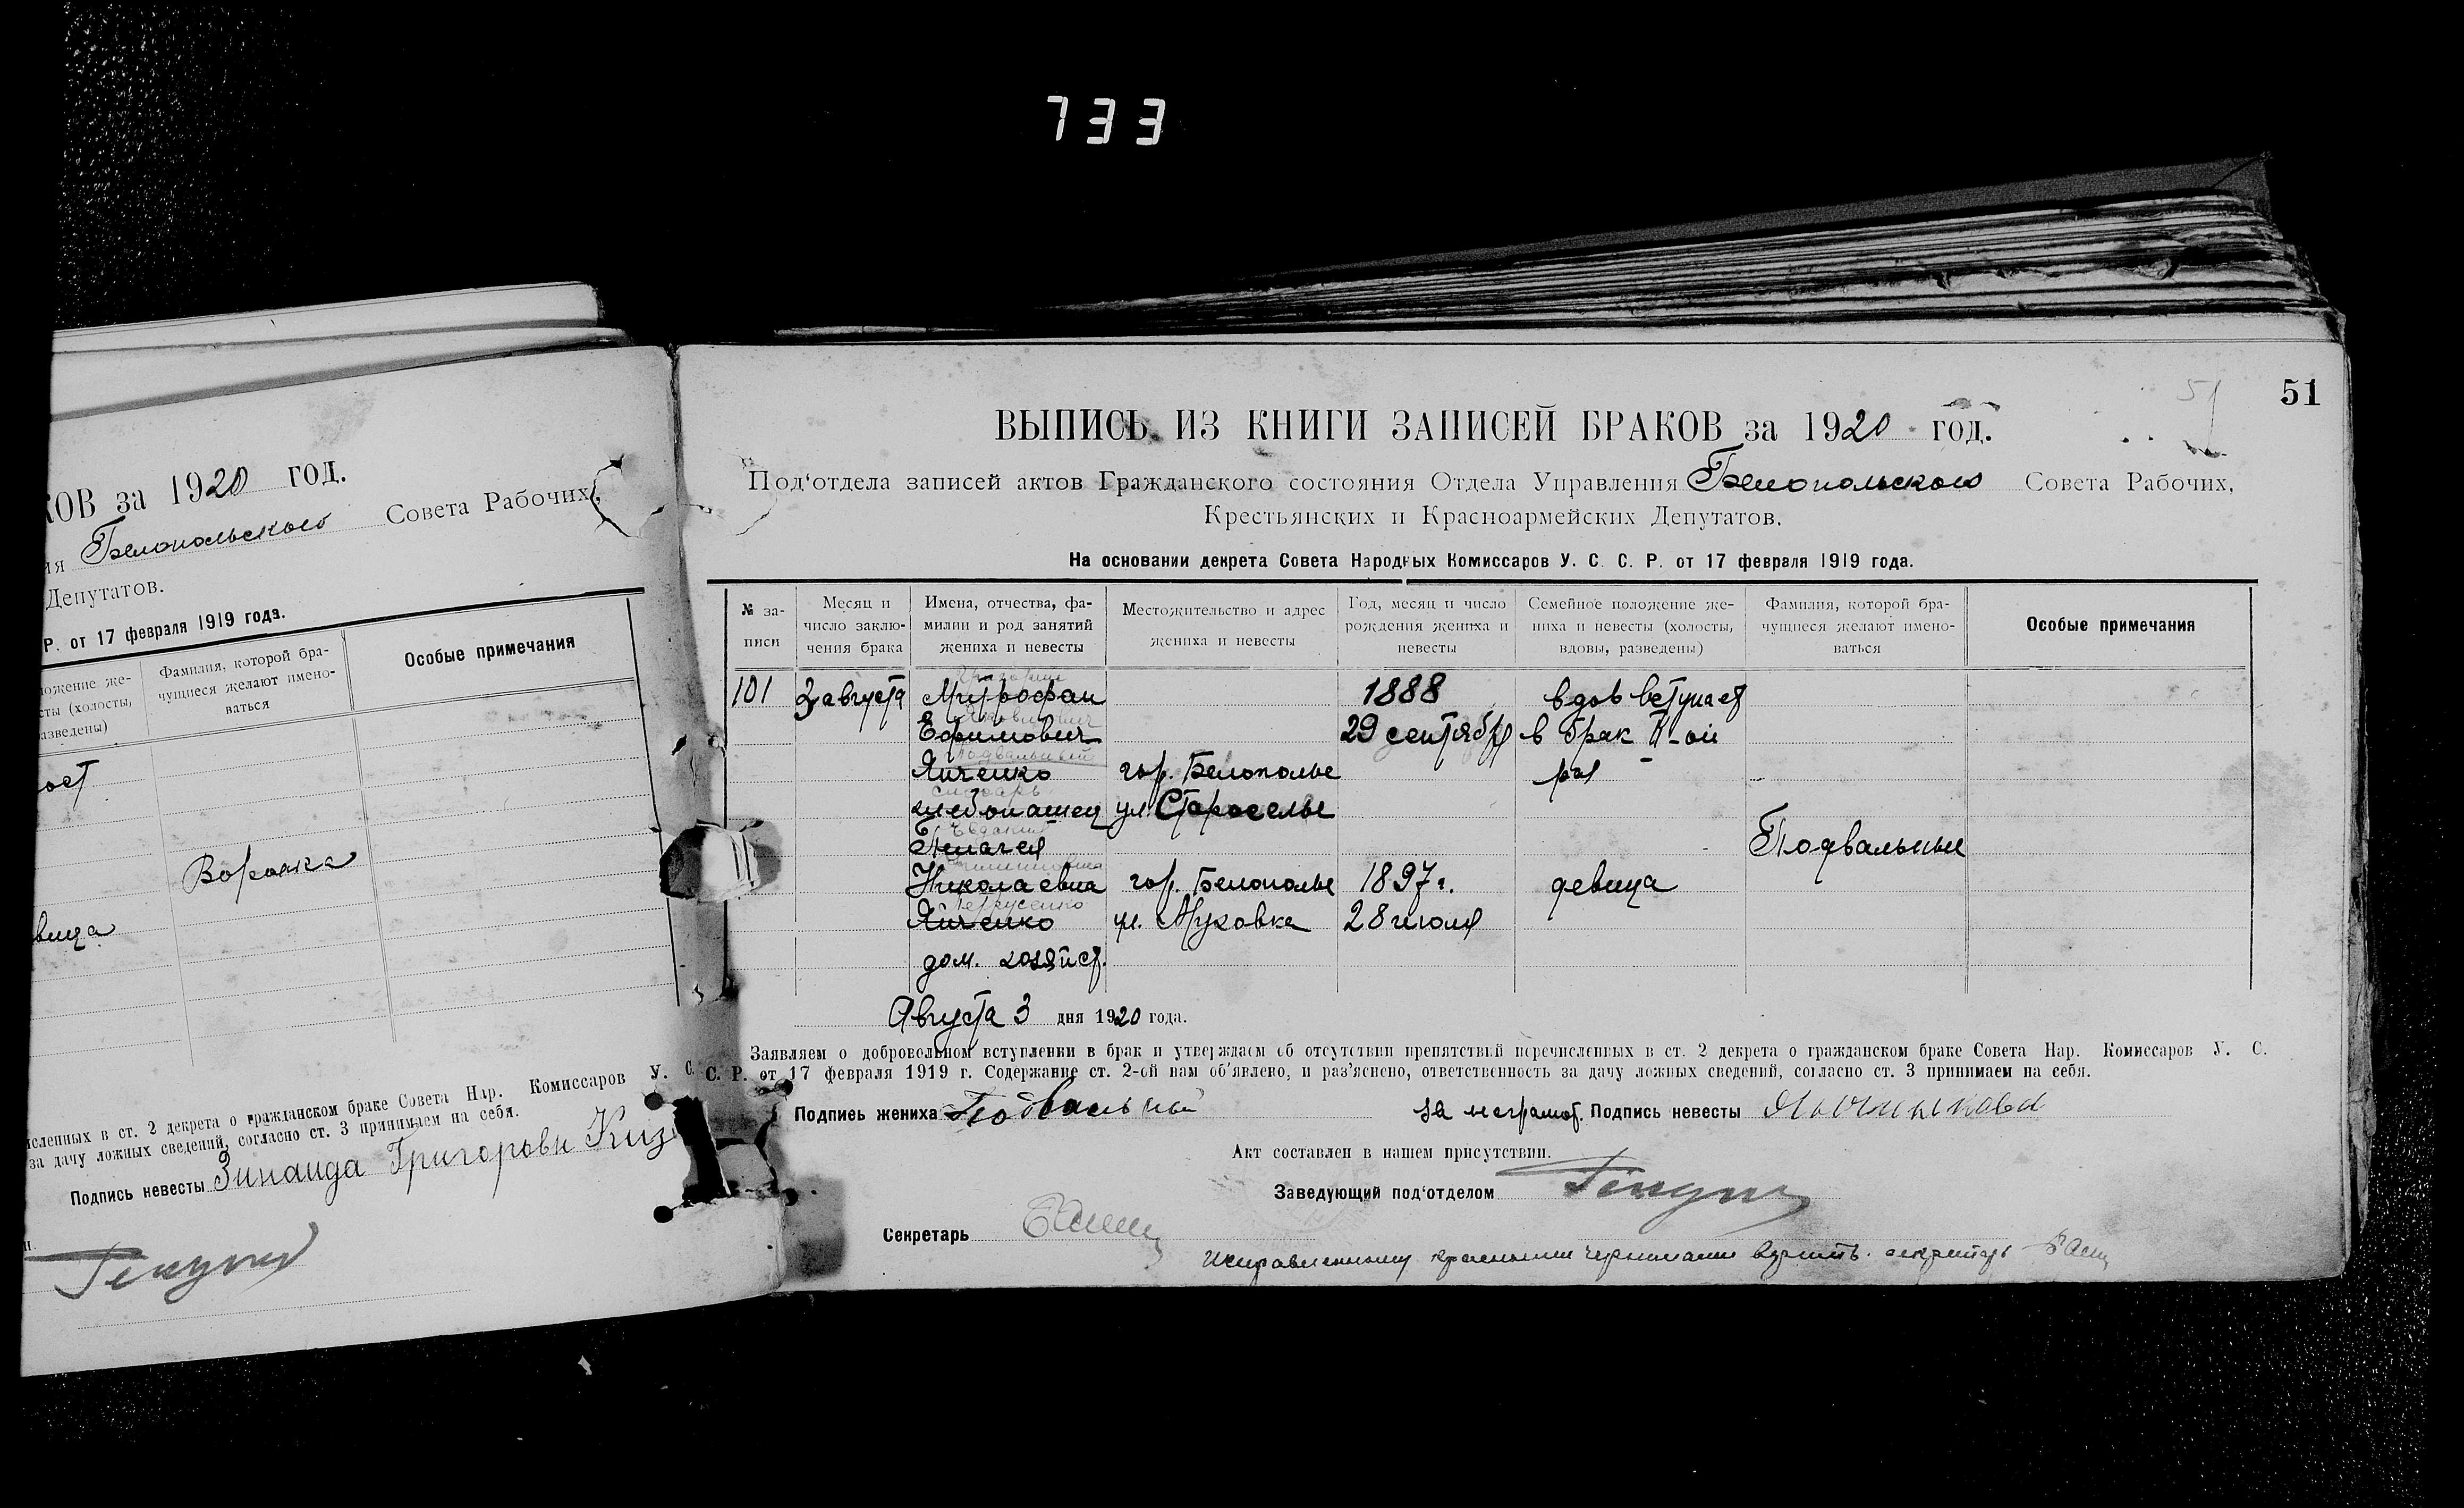 733
КОВ за 1920 год.
ия Белопольского Совета Рабочих,
Депутатов.
Р. от 17 февраля 1919 года.
ложение же-
сты (холосты,
азведены)
Фамилия, которой бра-
чущиеся желают имено-
ваться
Особые примечания
ост
Воронка
вица
исленных в ст. 2 декрета о гражданском браке Совета Нар. Комиссаров У. С.
за дачу ложных сведений, согласно ст. 3 принимаем на себя.
Подпись невесты Зинаида Григоровн Киз
51
51
ВЫПИСЬ ИЗ КНИГИ ЗАПИСЕЙ БРАКОВ за 1920 год.
Под‘отдела записей актов Гражданского состояния Отдела Управления Белопольского Совета Рабочих,
Крестьянских и Красноармейских Депутатов.
На основании декрета Совета Народных Комиссаров У. С. С. Р. от 17 февраля 1919 года.
№ за-
писи
Месяц и
число заклю-
чения брака
Имена, отчества, фа-
милии и род занятий
жениха и невесты
Местожительство и адрес
жениха и невесты
Год, месяц и число
рождения жениха и
невесты
Семейное положение же-
ниха и невесты (холосты,
вдовы, разведены)
Фамилия, которой бра-
чущиеся желают имено-
ваться
Особые примечания
Григорий
101 3 августа Митрофан 1888 вдов вступает
Яковлевич
Ефимович 29 сентября в брак II-ой
Подвальный
Янченко гор. Белополье раз
слюсарь
хлебопашец ул. Староселье
Евдокия
Пелагея Подвальные
Николаевна гор. Белополье 1897 г. девица
Петрусенко
Янченко ул. Муховка 28 июля
дом. хозяйст.
Августа 3 дня 1920 года.
Заявляем о добровольном вступлении в брак и утверждаем об отсутствии препятствий перечисленных в ст. 2 декрета о гражданском браке Совета Нар. Комиссаров У. С.
С. Р. от 17 февраля 1919 г. Содержание ст. 2-ой нам об’явлено, и раз’яснено, ответственность за дачу ложных сведений, согласно ст. 3 принимаем на себя.
Подпись жениха Подвальный за неграмот. Подпись невесты
Акт составлен в нашем присутствии.
Заведующий под‘отделом
Секретарь
Исправленному красными чернилами верить. секретарь